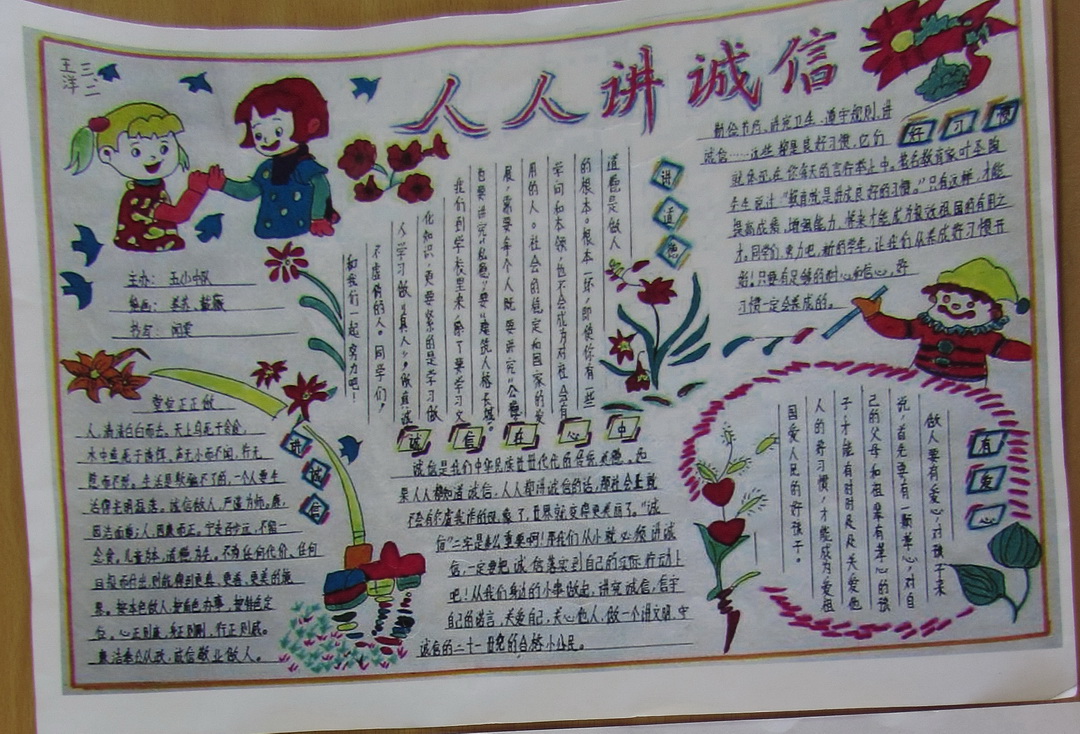 三、二
王洋
人人讲诚信
主办：五小中队
讲道德
道德是做人
的根本。根本一坏，即使你有一些
学问和本领，也不会成为对社会有
用的人。社会的稳定和国家的发
展，需要每个人既要讲究“公德”
也要讲究“私德”，要“建筑人格长城”。
我们到学校里来，除了要学习文
化知识，更要紧的是学习做
人，学习做“真人”，做真诚
不虚伪的人。同学们，
和我们一起努力吧！
好习惯
勤俭节约、讲究卫生、遵守规则、讲
诚信……这些都是良好习惯，它们
就体现在你每天的言行举止中。著名教育家叶圣陶
先生说过：“教育就是养成良好的习惯。”只有这样，才能
提高成绩，增强能力，将来才能成为报效祖国的有用之
才。同学们，努力吧，新的学年，让我们从养成好习惯开
始！只要有足够的耐心和信心，好
习惯一定会养成的。
讲诚信
堂堂正正做
人，清清白白而去。天上鸟死于贪食，
水中鱼死于诱饵。
一个人要生
活得光明磊落。诚信做人，
心正则
身正则
行正则
诚信敬业做人。
诚信在心中
诚信是我们中华民族世世代代的传统美德。如
果人人都知道诚信，人人都讲诚信的话，那社会上就
不会有弄虚作假的现象了，世界就变得更美丽了。“诚
信”二字是多么重要啊！那我们从小就必须讲诚
信，一定要把诚信落实到自己的实际行动上
吧！从我们身边的小事做起，讲究诚信，信守
自己的诺言，关爱自己，关心他人，做一个讲文明、守
诚信的二十一世纪的合格小公民。
有爱心
做人要有爱心，对孩子来
说，首先要有一颗孝心，对自
己的父母和祖辈有孝心的孩
子，才能有时时处处关爱他
人的好习惯，才能成为爱祖
国爱人民的好孩子。